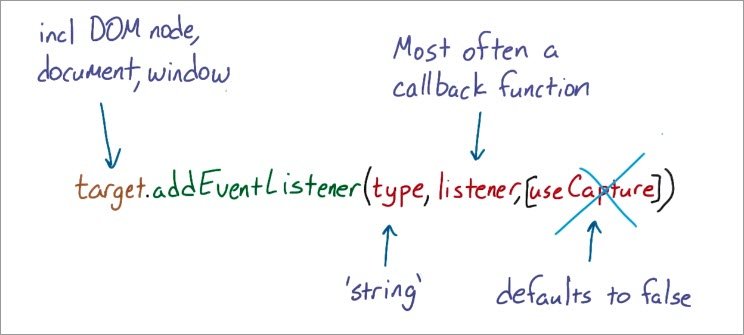 incl DOM node,
document, window
Most often a
callback function
target.addEventListener(type, listener,[useCapture])
'string'
defaults to false